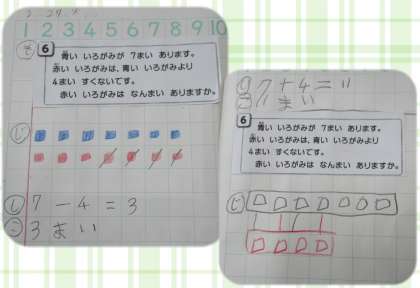 1 2 3 4 5 6 7 8 9 10
6
青い いろがみが 7まい あります。
赤い いろがみは、青い いろがみより
4まい すくないです。
赤い いろがみは なんまい ありますか。
7-4=3
3まい
7+4=11
11まい
6
青い いろがみが 7まい あります。
赤い いろがみは、青い いろがみより
4まい すくないです。
赤い いろがみは なんまい ありますか。